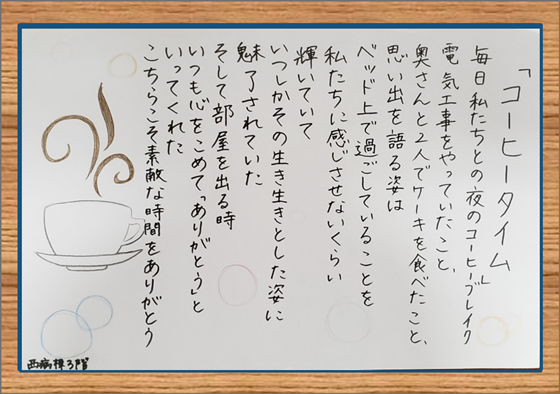 「コーヒータイム」
毎日私たちとの夜のコーヒーブレイク
電気工事をやっていたこと、
奥さんと2人でケーキを食べたこと、
思い出を語る姿は
ベッド上で過ごしていることを
私たちに感じさせないくらい
輝いていて
いつしかその生き生きとした姿に
魅了されていた
そして部屋を出る時
いつも心をこめて「ありがとう」と
いってくれた
こちらこそ素敵な時間をありがとう
西病棟3階